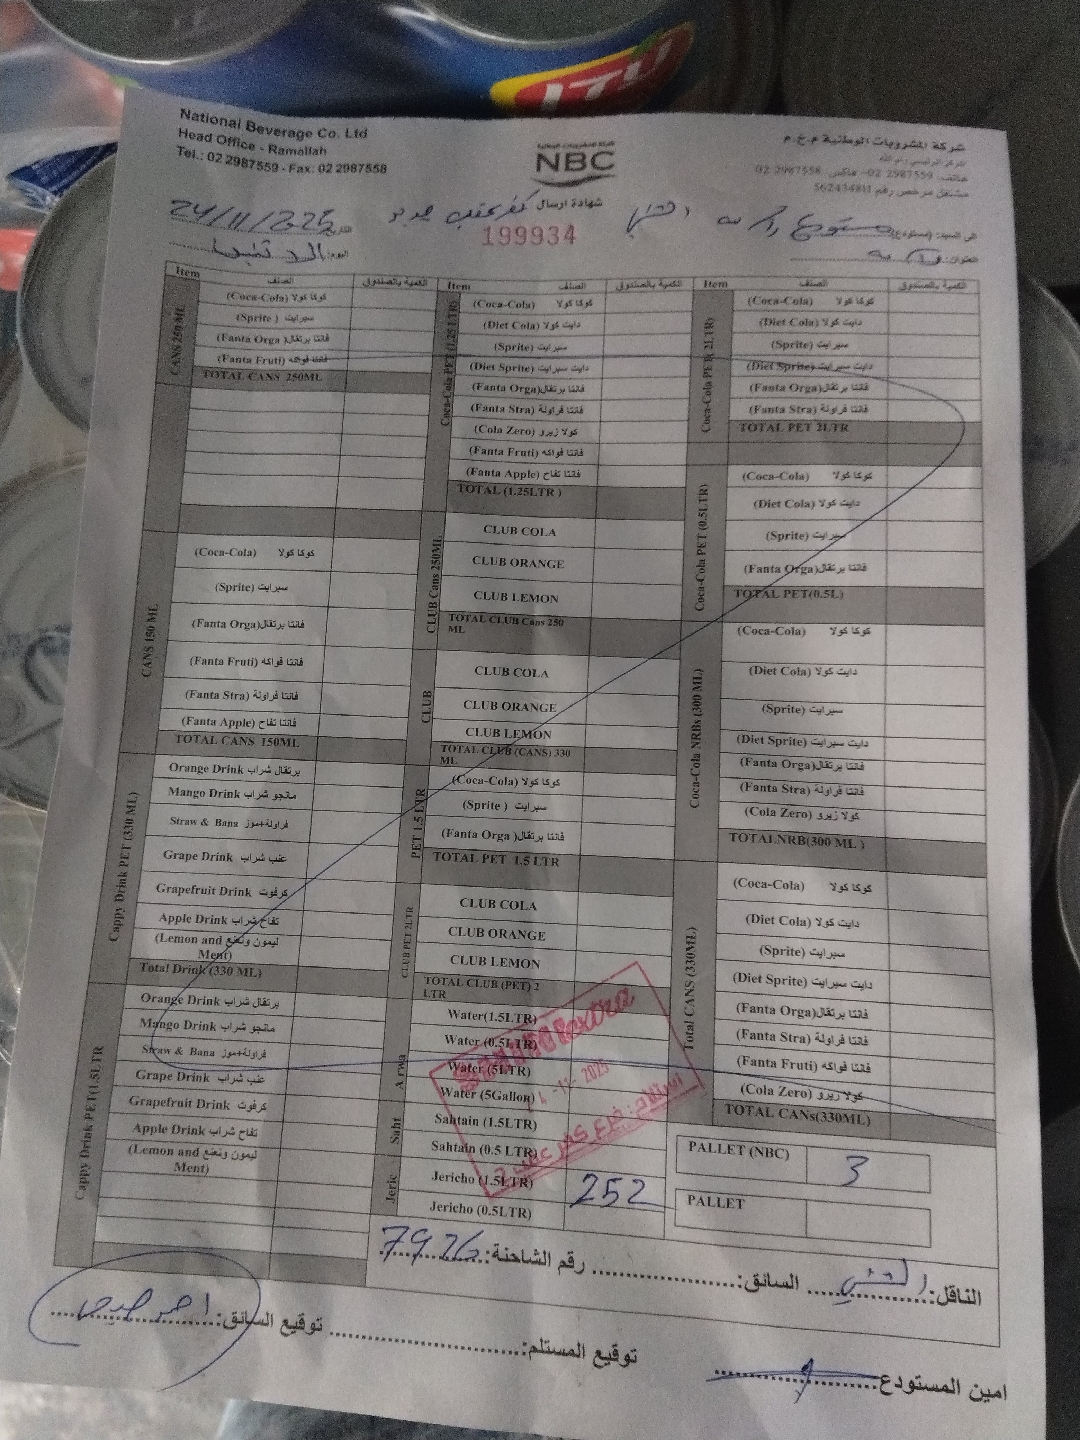 National Beverage Co. Ltd
Head Office - Ramallah
Tel.: 02 2987559 - Fax: 02 2987558
NBC
شركة المشروبات الوطنية م.خ.م
المركز الرئيسي رام الله
هاتف: 2987559 02- فاكس: 2987558 02
مشتغل مرخص رقم 562434811
شهادة ارسال
199934
24/11/2025
التاريخ
الى السيد: (مستودع)
اليوم:
العنوان:
Item الصنف الكمية بالصندوق
CANS 250 ML
(Coca-Cola) كوكا كولا
(Sprite ) سبرايت
(Fanta Orga) فانتا برتقال
(Fanta Fruti) فانتا فواكه
TOTAL CANS 250ML
CANS 150 ML
(Coca-Cola) كوكا كولا
(Sprite) سبرايت
(Fanta Orga) فانتا برتقال
(Fanta Fruti) فانتا فواكه
(Fanta Stra) فانتا فراولة
(Fanta Apple) فانتا تفاح
TOTAL CANS 150ML
Cappy Drink PET (330 ML)
Orange Drink برتقال شراب
Mango Drink مانجو شراب
Straw & Bana فراولة+موز
Grape Drink عنب شراب
Grapefruit Drink كرفوت
Apple Drink تفاح شراب
(Lemon and ليمون ونعنع
Ment)
Total Drink (330 ML)
Cappy Drink PET(1.5LTR
Orange Drink برتقال شراب
Mango Drink مانجو شراب
Straw & Bana فراولة+موز
Grape Drink عنب شراب
Grapefruit Drink كرفوت
Apple Drink تفاح شراب
(Lemon and ليمون ونعنع
Ment)
Item الصنف الكمية بالصندوق
Coca-Cola PET (1.25 LTR)
(Coca-Cola) كوكا كولا
(Diet Cola) دايت كولا
(Sprite) سبرايت
(Diet Sprite) دايت سبرايت
(Fanta Orga) فانتا برتقال
(Fanta Stra) فانتا فراولة
(Cola Zero) كولا زيرو
(Fanta Fruti) فانتا فواكه
(Fanta Apple) فانتا تفاح
TOTAL (1.25LTR )
CLUB Cans 250ML
CLUB COLA
CLUB ORANGE
CLUB LEMON
TOTAL CLUB Cans 250
ML
CLUB
CLUB COLA
CLUB ORANGE
CLUB LEMON
TOTAL CLUB (CANS) 330
ML
PET 1.5 LTR
(Coca-Cola) كوكا كولا
(Sprite ) سبرايت
(Fanta Orga ) فانتا برتقال
TOTAL PET 1.5 LTR
CLUB PET 2LTR
CLUB COLA
CLUB ORANGE
CLUB LEMON
TOTAL CLUB (PET) 2
LTR
Arwa
Water(1.5LTR)
Water (0.5LTR)
Water (5LTR)
Water (5Gallon)
Saht
Sahtain (1.5LTR)
Sahtain (0.5 LTR)
Jeric
Jericho (1.5LTR) 252
Jericho (0.5LTR)
Item الصنف الكمية بالصندوق
Coca-Cola PER 2LTR)
(Coca-Cola) كوكا كولا
(Diet Cola) دايت كولا
(Sprite) سبرايت
(Diet Sprite) دايت سبرايت
(Fanta Orga) فانتا برتقال
(Fanta Stra) فانتا فراولة
TOTAL PET 2LTR
Coca-Cola PET (0.5LTR)
(Coca-Cola) كوكا كولا
(Diet Cola) دايت كولا
(Sprite) سبرايت
(Fanta Orga) فانتا برتقال
TOTAL PET(0.5L)
Coca-Cola NRBs (300 ML)
(Coca-Cola) كوكا كولا
(Diet Cola) دايت كولا
(Sprite) سبرايت
(Diet Sprite) دايت سبرايت
(Fanta Orga) فانتا برتقال
(Fanta Stra) فانتا فراولة
(Cola Zero) كولا زيرو
TOTALNRB(300 ML )
Total CANS (330ML)
(Coca-Cola) كوكا كولا
(Diet Cola) دايت كولا
(Sprite) سبرايت
(Diet Sprite) دايت سبرايت
(Fanta Orga) فانتا برتقال
(Fanta Stra) فانتا فراولة
(Fanta Fruti) فانتا فواكه
(Cola Zero) كولا زيرو
TOTAL CANs(330ML)
PALLET (NBC) 3
PALLET
الناقل: السائق: رقم الشاحنة: 7926
توقيع السائق:
توقيع المستلم:
امين المستودع